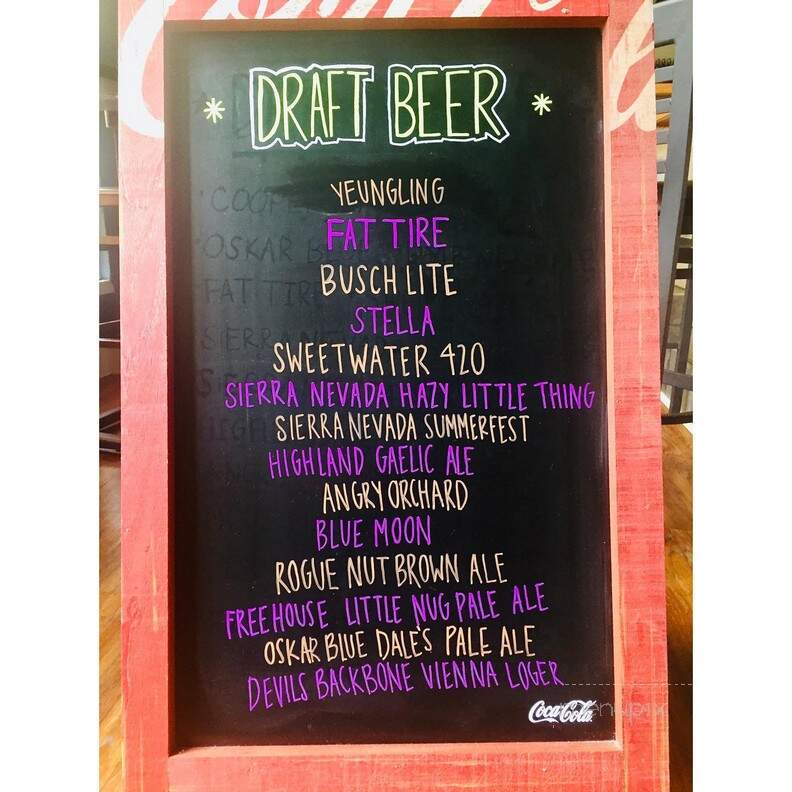 DRAFT BEER
YEUNGLING
FAT TIRE
BUSCH LITE
STELLA
SWEETWATER 420
SIERRA NEVADA HAZY LITTLE THING
SIERRA NEVADA SUMMERFEST
HIGHLAND GAELIC ALE
ANGRY ORCHARD
BLUE MOON
ROGUE NUT BROWN ALE
FREEHOUSE LITTLE NUG PALE ALE
OSKAR BLUE DALE'S PALE ALE
DEVILS BACKBONE VIENNA LOGER
Coca-Cola